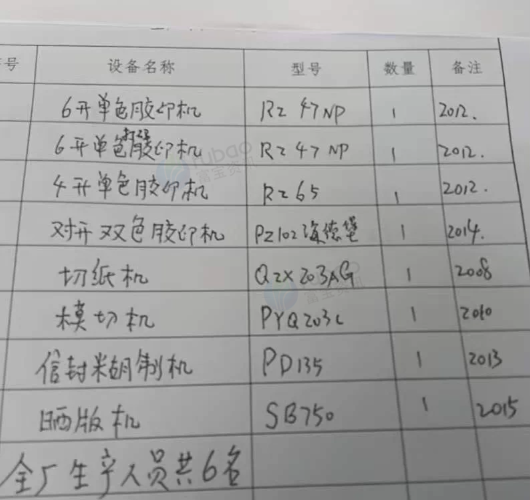 号 设备名称 型号 数量 备注
6开单色胶印机 RZ 47NP 1 2012.
6开单色打码胶印机 RZ 47NP 1 2012.
4开单色胶印机 RZ65 1 2012.
对开双色胶印机 PZ102海德堡 1 2014.
切纸机 QZX203AG 1 2008
模切机 PYQ203C 1 2010
信封糊制机 PD135 1 2013
晒版机 SB750 1 2015
全厂生产人员共6名